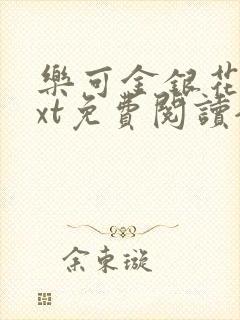 樂可金銀花
xt免費閱讀
余東璇